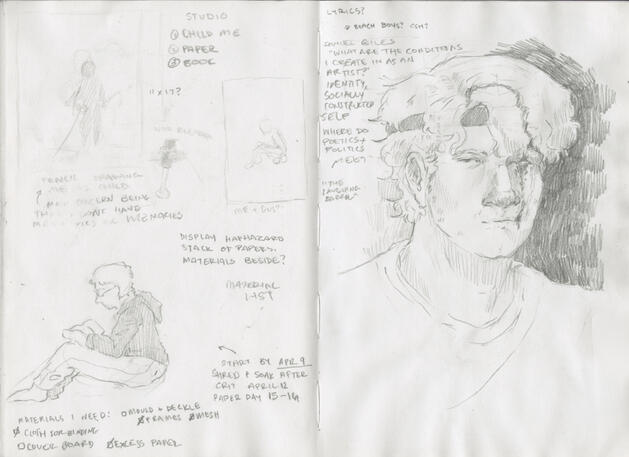 STUDIO
① CHILD ME
② PAPER
③ BOOK
11 x 17?
PENCIL DRAWING
ME AS CHILD
MAIN CONCERN BEING
THAT I DON'T HAVE
MEMORIES
ME + GUS?
DISPLAY HAPHAZARD
STACK OF PAPERS.
MATERIALS BESIDE?
MATERIAL
LIST
START BY APR 9
SHRED + SOAK AFTER
CRIT APRIL 12
PAPER DAY 15-16
MATERIALS I NEED: MOULD + DECKLE
CLOTH FOR BINDING FRAMES MESH
COVER BOARD EXCESS PAPER
LYRICS?
BEACH BOYS? CSH?
DANIEL GILES
"WHAT ARE THE CONDITIONS
I CREATE IN AS AN
ARTIST?"
IDENTITY,
SOCIALLY
CONSTRUCTED
SELF
WHERE DO
POETICS +
POLITICS
MEET?
"THE